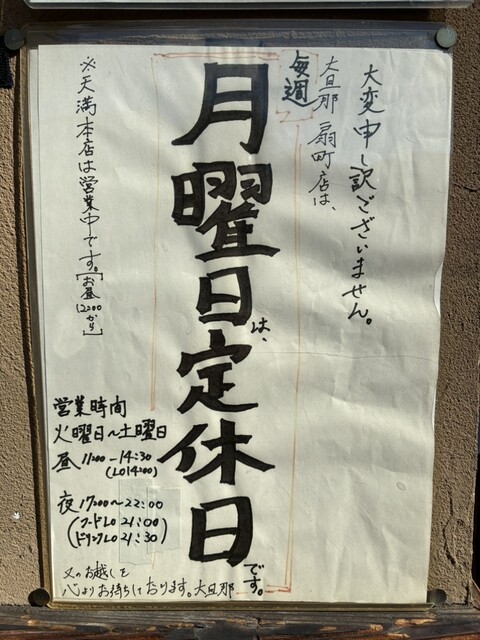 大変申し訳ございません。
大旦那 扇町店は、
毎週
月曜日は、定休日です。
※天満本店は営業中です。[お昼12:00から]
営業時間
火曜日〜土曜日
昼 11:00-14:30
(LO14:00)
夜 17:00〜22:00
(フードLO 21:00)
(ドリンクLO 21:30)
又のお越しを
心よりお待ちしております。大旦那